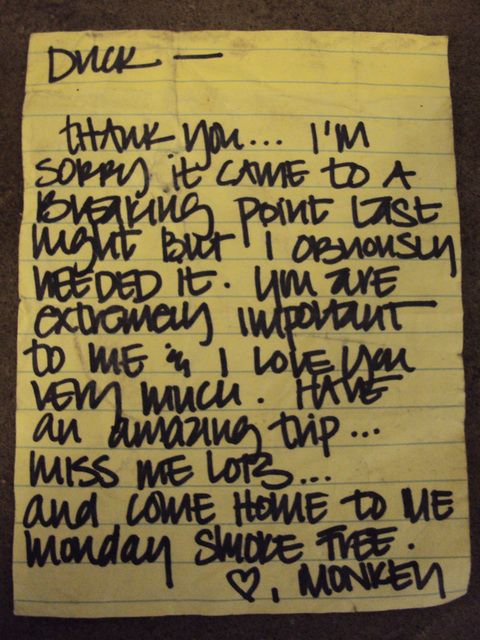 DUCK —
THANK YOU... I'M
SORRY it CAME to A
BREAKING POINT LAST
NIGHT BUT I OBVIOUSLY
NEEDED IT. YOU ARE
extremely important
to ME & I LOVE YOU
VERY MUCH. HAVE
an amazing trip...
MISS ME LOTS...
and COME HOME to ME
monday SMOKE FREE.
♡, MONKEY